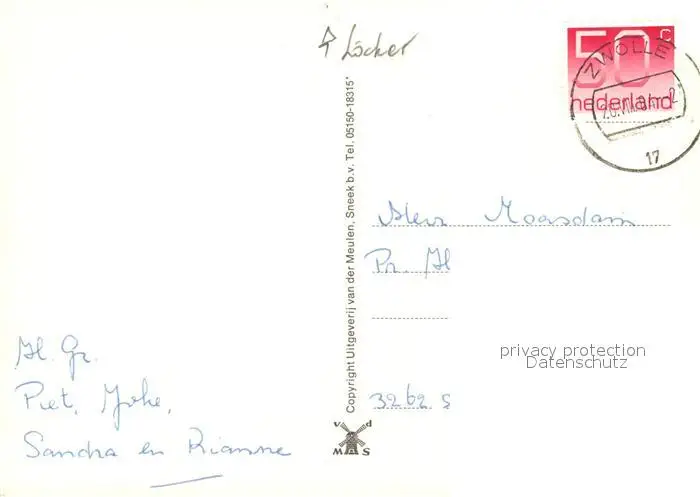 Löcker
50 C
nederland
ZWOLLE
17
Copyright Uitgeverij van der Meulen, Sneek b.v. Tel. 05150-18315*
v d
M S
Maasdam
Pr. H
3262 S
privacy protection
Datenschutz
H. Gr.
Piet, Joke,
Sandra en Rianne